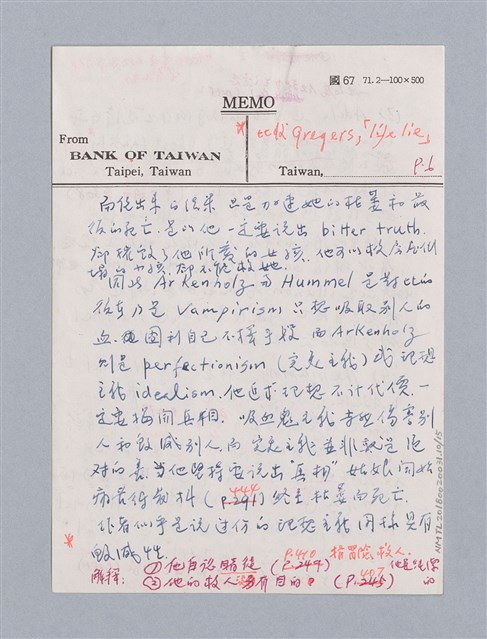 國 67 71.2—100×500
MEMO
From
BANK OF TAIWAN
Taipei, Taiwan
Taiwan,
* 比較 Gregers,「life lie」
P.6
而說出來的後果只是加速她的枯萎和最
後的死亡。是的他一定要說出 bitter truth.
卻殘殺了他所愛的女孩、他可以救房屋倒
塌的小孩、卻不能救她。
因此 Arkenholz 與 Hummel 是對比的
後者乃是 Vampirism 只想吸取別人的
血,圖利自己不擇手段 而 Arkenholz
則是 perfectionism (完美主義) 或理想
主義 idealism. 他追求理想不計代價,一
定要揭開真相. 吸血鬼主義 傷害別
人和毀滅別人,而完美主義並非就是絕
對的善,當他堅持要說出"真相"姑娘開始
痛苦 (p.291) 444 終至枯萎而死亡
作者似乎是說過份的理想主義同樣具有
* 毀滅性
P.410 指冒險救人.
解釋: ① 他自認 (P.244) 他是
② 他的救人 另有目的 (P.245) 407 的
NMTL20180020031.10/15